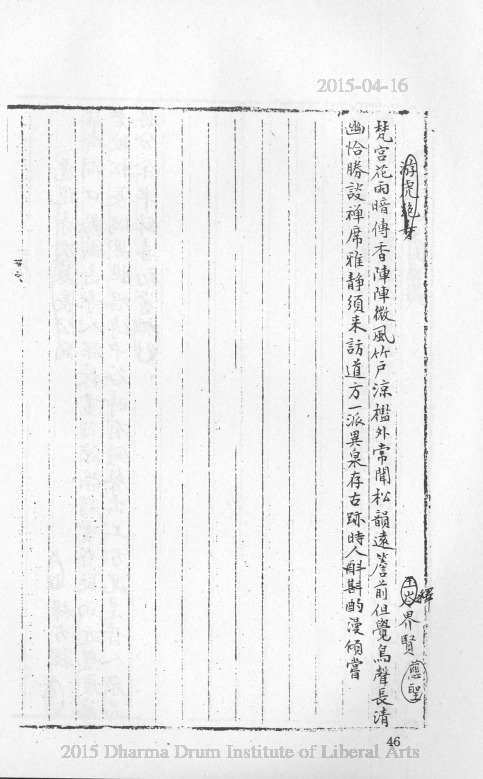 2015-04-16
游虎跑寺
釋界賢
梵宮花雨暗傳香陣陣微風竹戶涼檻外常聞松韻遠簷前但覺鳥聲長清
幽恰勝談禪席雅靜須來訪道方一派異泉存古跡時人斟酌漫傾嘗
46
2015 Dharma Drum Institute of Liberal Arts